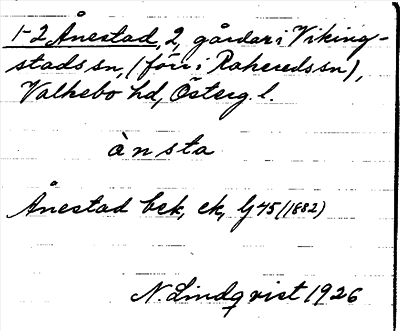 1-2 Ånestad, 2, gårdar i Viking-
stads sn, (förr i Rakereds sn),
Valkebo hd, Österg. l.
ànsta
Ånestad bck, ek, Lj 45 (1882)
N. Lindqvist 1926